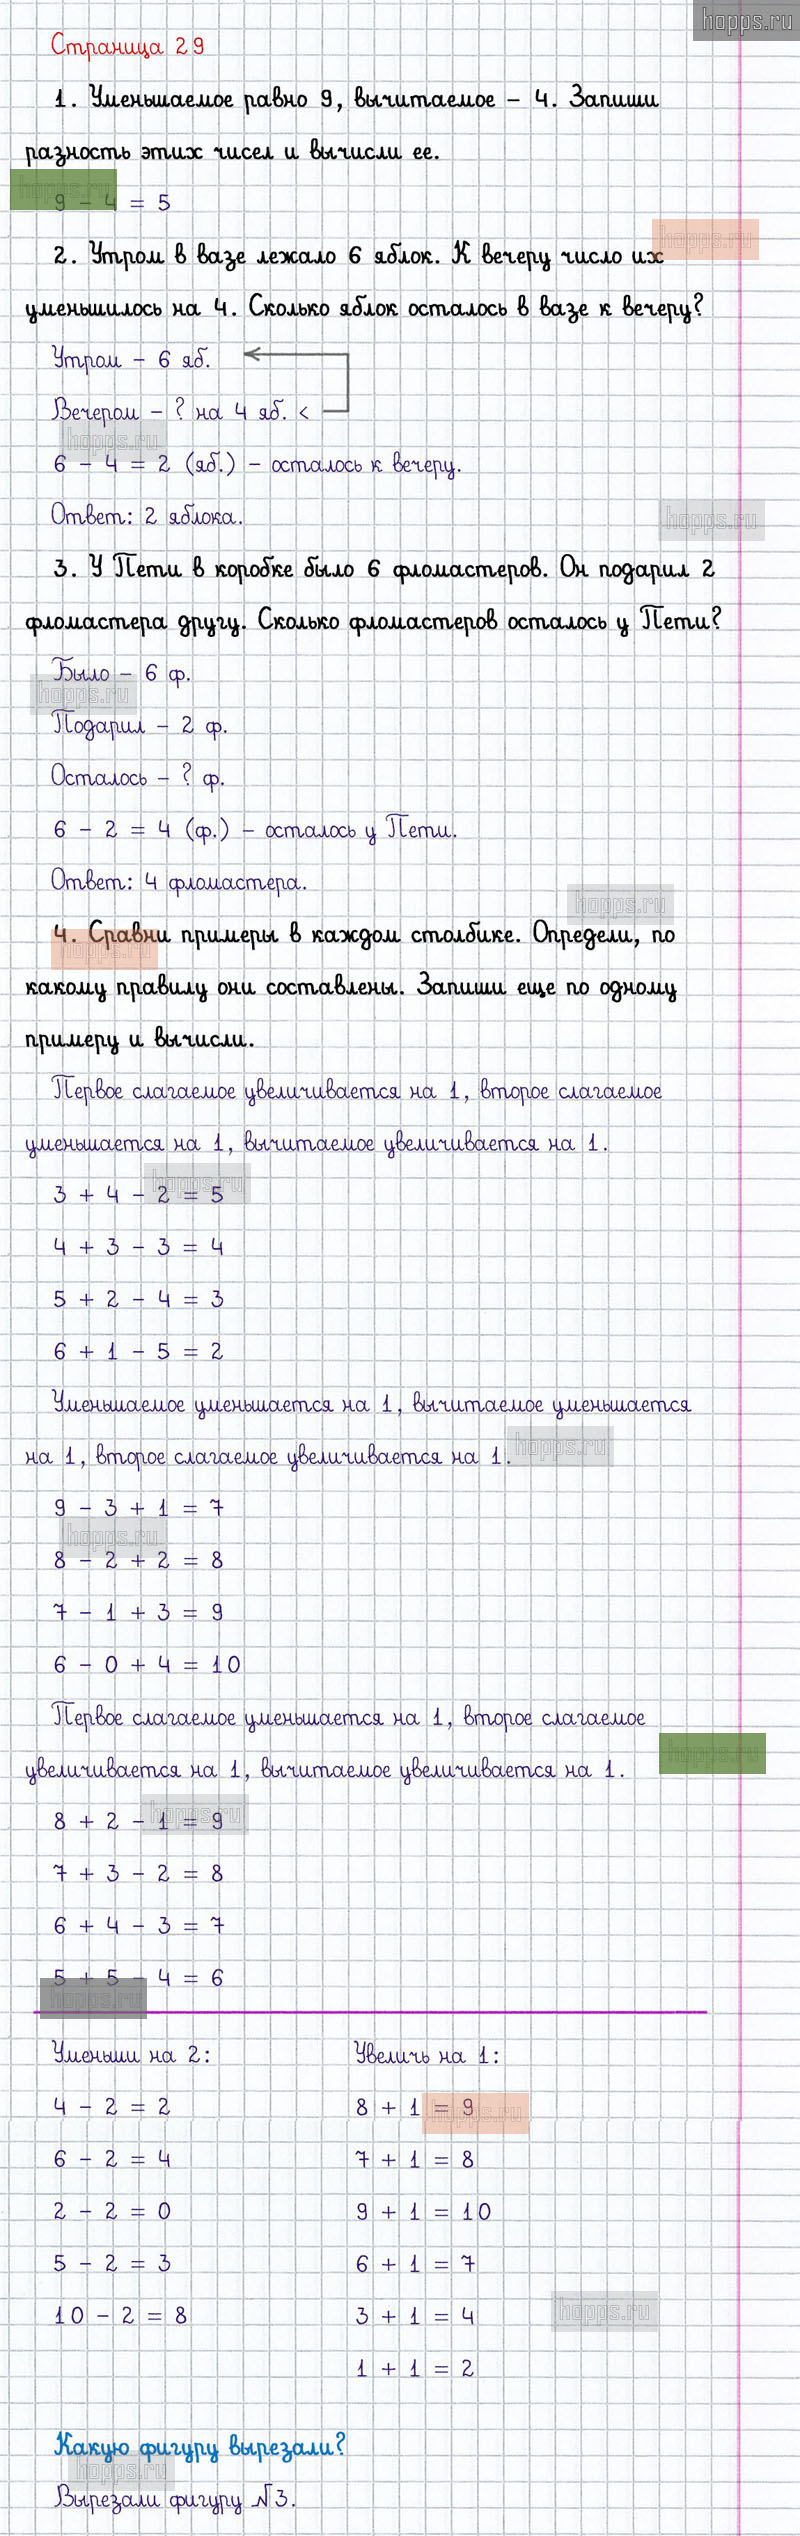 hopps.ru
Страница 29
1. Уменьшаемое равно 9, вычитаемое – 4. Запиши
разность этих чисел и вычисли ее.
hopps.ru
9 – 4 = 5
hopps.ru
2. Утром в вазе лежало 6 яблок. К вечеру число их
уменьшилось на 4. Сколько яблок осталось в вазе к вечеру?
Утром – 6 яб.
Вечером – ? на 4 яб. <
hopps.ru
6 – 4 = 2 (яб.) – осталось к вечеру.
Ответ: 2 яблока.
hopps.ru
3. У Пети в коробке было 6 фломастеров. Он подарил 2
фломастера другу. Сколько фломастеров осталось у Пети?
Было – 6 ф.
hopps.ru
Подарил – 2 ф.
Осталось – ? ф.
6 – 2 = 4 (ф.) – осталось у Пети.
Ответ: 4 фломастера.
hopps.ru
4. Сравни примеры в каждом столбике. Определи, по
hopps.ru
какому правилу они составлены. Запиши еще по одному
примеру и вычисли.
Первое слагаемое увеличивается на 1, второе слагаемое
уменьшается на 1, вычитаемое увеличивается на 1.
hopps.ru
3 + 4 – 2 = 5
4 + 3 – 3 = 4
5 + 2 – 4 = 3
6 + 1 – 5 = 2
Уменьшаемое уменьшается на 1, вычитаемое уменьшается
на 1, второе слагаемое увеличивается на 1.
hopps.ru
9 – 3 + 1 = 7
hopps.ru
8 – 2 + 2 = 8
7 – 1 + 3 = 9
6 – 0 + 4 = 10
Первое слагаемое уменьшается на 1, второе слагаемое
hopps.ru
увеличивается на 1, вычитаемое увеличивается на 1.
hopps.ru
8 + 2 – 1 = 9
7 + 3 – 2 = 8
6 + 4 – 3 = 7
5 + 5 – 4 = 6
hopps.ru
Уменьши на 2:
4 – 2 = 2
6 – 2 = 4
2 – 2 = 0
5 – 2 = 3
10 – 2 = 8
Увеличь на 1:
8 + 1 = 9
hopps.ru
7 + 1 = 8
9 + 1 = 10
6 + 1 = 7
3 + 1 = 4
1 + 1 = 2
hopps.ru
Какую фигуру вырезали?
hopps.ru
Вырезали фигуру №3.